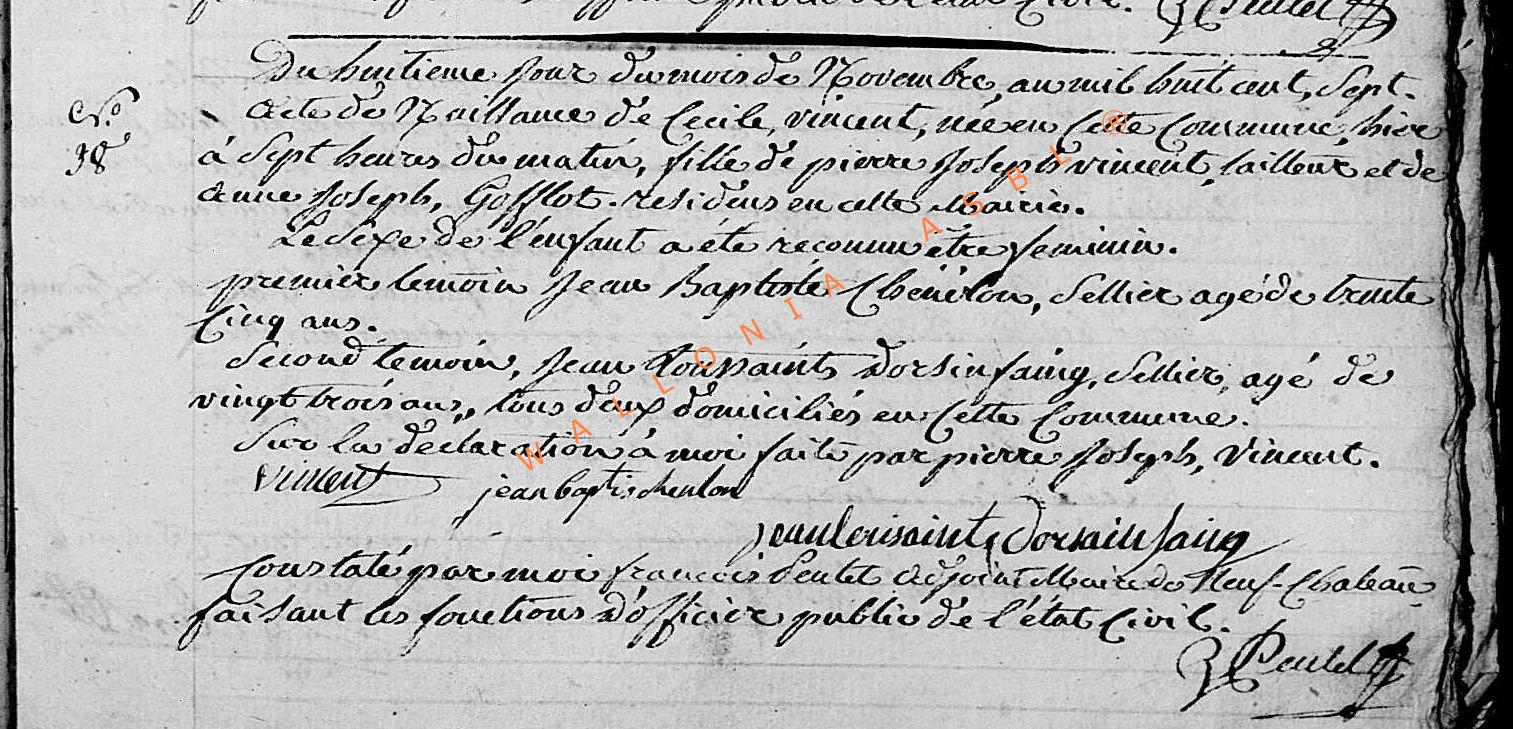 Du huitieme jour du mois de Novembre, an mil huit cent, Sept.
No. 38
acte de Naissance de Cecile, vincent, née en Cette Commune, hier
à Sept heures du matin, fille de pierre Joseph vincent, tailleur et de
anne Joseph, Gofflot. residens en cette Mairie.
Le Sexe de l'enfant a été reconnu être feminin.
premier temoin Jean Baptiste Chênelon, Sellier agé de trente
Cinq ans.
Second temoin, Jean Toussaints Dorsinfaing, Sellier, agé de
vingt trois ans, tous deux domiciliés en Cette Commune.
Sur la déclaration à moi faite par pierre Joseph, Vincent.
vincent jean baptis chenlon
jean tousaint Dorsainfaing
Constaté par moi françois adjoint Maire de Neuf-Chateau
faisant les fonctions D'officier public de l'état Civil.
WALLONIA ASBL ®